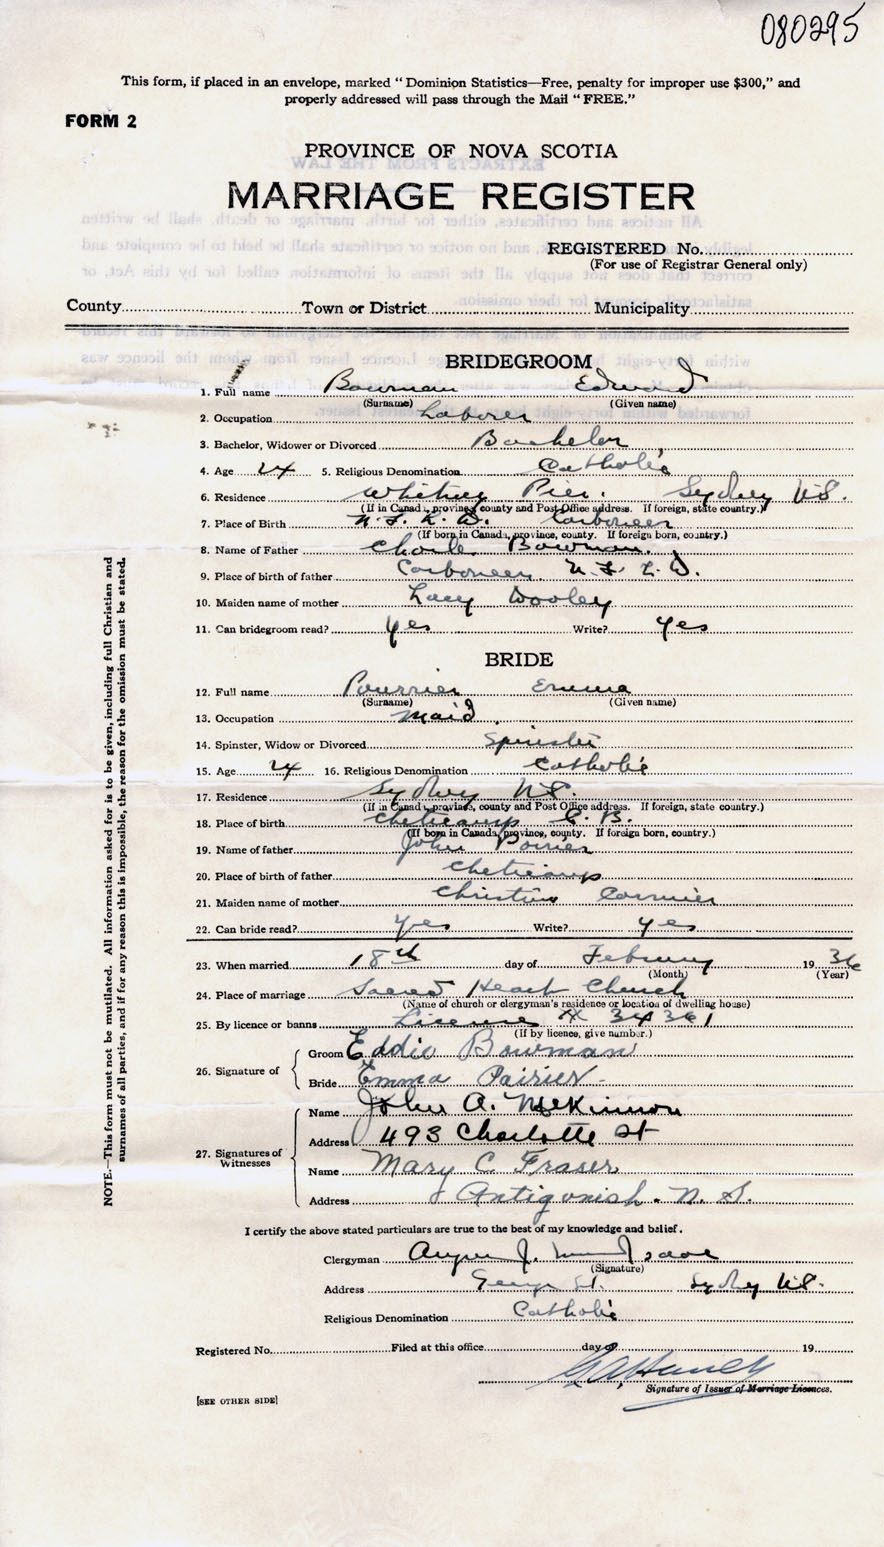 080295
This form, if placed in an envelope, marked "Dominion Statistics—Free, penalty for improper use $300," and
properly addressed will pass through the Mail "FREE."
FORM 2
PROVINCE OF NOVA SCOTIA
MARRIAGE REGISTER
REGISTERED No.
(For use of Registrar General only)
County Town or District Municipality
BRIDEGROOM
1. Full name Bowman Edward
(Surname) (Given name)
2. Occupation Laborer
3. Bachelor, Widower or Divorced Bachelor
4. Age 24 5. Religious Denomination Catholic
6. Residence Whitney Pier. Sydney N.S.
(If in Canada, province, county and Post Office address. If foreign, state country.)
7. Place of Birth N.F.L.D. Carboneer
(If born in Canada, province, county. If foreign born, country.)
8. Name of Father Charle Bowman.
9. Place of birth of father Carboneer N.F.L.D.
10. Maiden name of mother Lucy Dooley
11. Can bridegroom read? Yes Write? Yes
BRIDE
12. Full name Pourrier Emma
(Surname) (Given name)
13. Occupation Maid.
14. Spinster, Widow or Divorced Spinster
15. Age 24 16. Religious Denomination Catholic
17. Residence Sydney N.S.
(If in Canada, province, county and Post Office address. If foreign, state country.)
18. Place of birth Cheticamp C.B.
(If born in Canada, province, county. If foreign born, country.)
19. Name of father John Poirier
20. Place of birth of father Cheticamp
21. Maiden name of mother Christine Cormier
22. Can bride read? Yes Write? Yes
23. When married 18th day of February 1936
(Month) (Year)
24. Place of marriage Sacred Heart Church
(Name of church or clergyman's residence or location of dwelling house)
25. By licence or banns License # 34361
(If by licence, give number.)
26. Signature of
Groom Eddie Bowman
Bride Emma Pairier
27. Signatures of Witnesses
Name John A. McKinnon
Address 493 Charlotte St
Name Mary C. Fraser
Address Antigonish. N. S.
I certify the above stated particulars are true to the best of my knowledge and belief.
Clergyman Angus J.
(Signature)
Address George St. Sydney N.S.
Religious Denomination Catholic
Registered No. Filed at this office day of 19
Signature of Issuer of Marriage Licences.
[SEE OTHER SIDE]
NOTE.—This form must not be mutilated. All information asked for is to be given, including full Christian and
surnames of all parties, and if for any reason this is impossible, the reason for the omission must be stated.